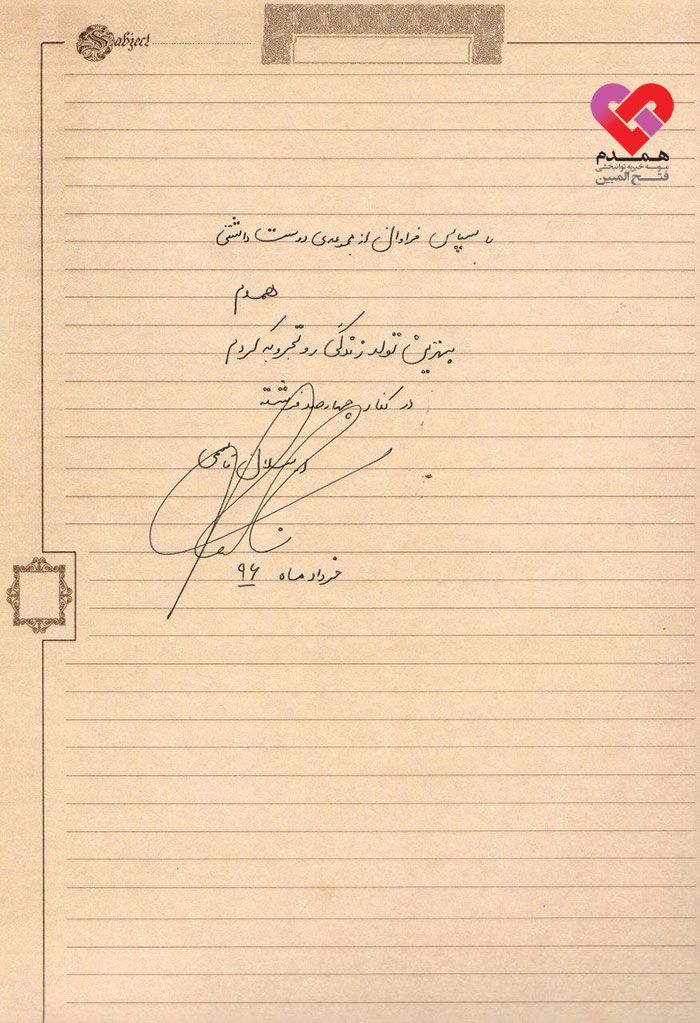 Subject
همدم
موسسه خیریه توانبخشی
فتح المبین
با سپاس فراوان از مجموعه‌ی دوست داشتنی
همدم
بهترین تولد زندگی رو تجربه کردم
در کنار چهارصد فرشته
ارسلان قاسمی
خرداد ماه ۹۶